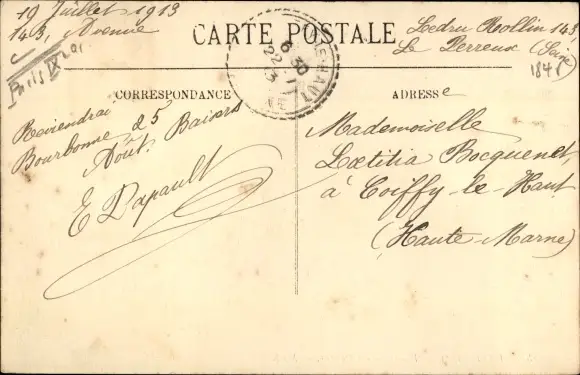 19 Juillet 1913
143, Avenue
Ledru Rollin 143
Le Perreux (Seine)
Paris
CARTE POSTALE
1841
6 30
22 -7
13
-LE-HAUT
CORRESPONDANCE
ADRESSE
Reviendrai
Bourbonne 25
Août. Baisers
E Dapault
Mademoiselle
Lœtitia Bocquenet,
à Coiffy-le-Haut
(Haute-Marne)